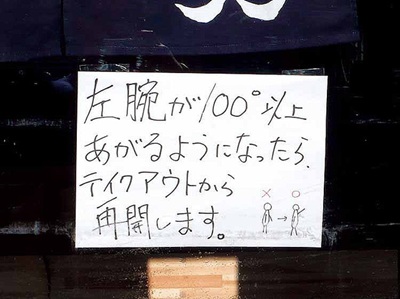 左腕が100°以上
あがるようになったら、
テイクアウトから
再開します。
× ○
→